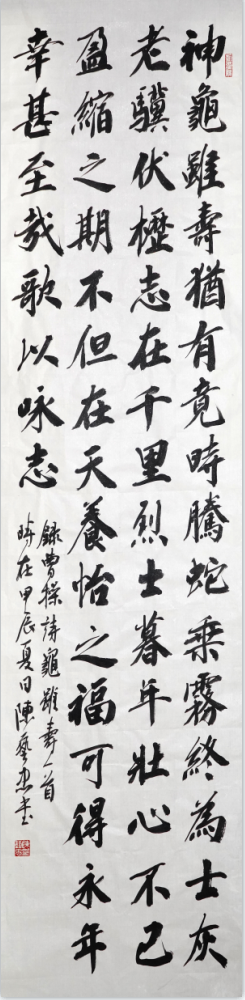 神龜雖壽猶有竟時騰蛇乘霧終為土灰
老驥伏櫪志在千里烈士暮年壯心不已
盈縮之期不但在天養怡之福可得永年
幸甚至哉歌以咏志
錄曹操詩龜雖壽一首
時在甲辰夏日陳藝書